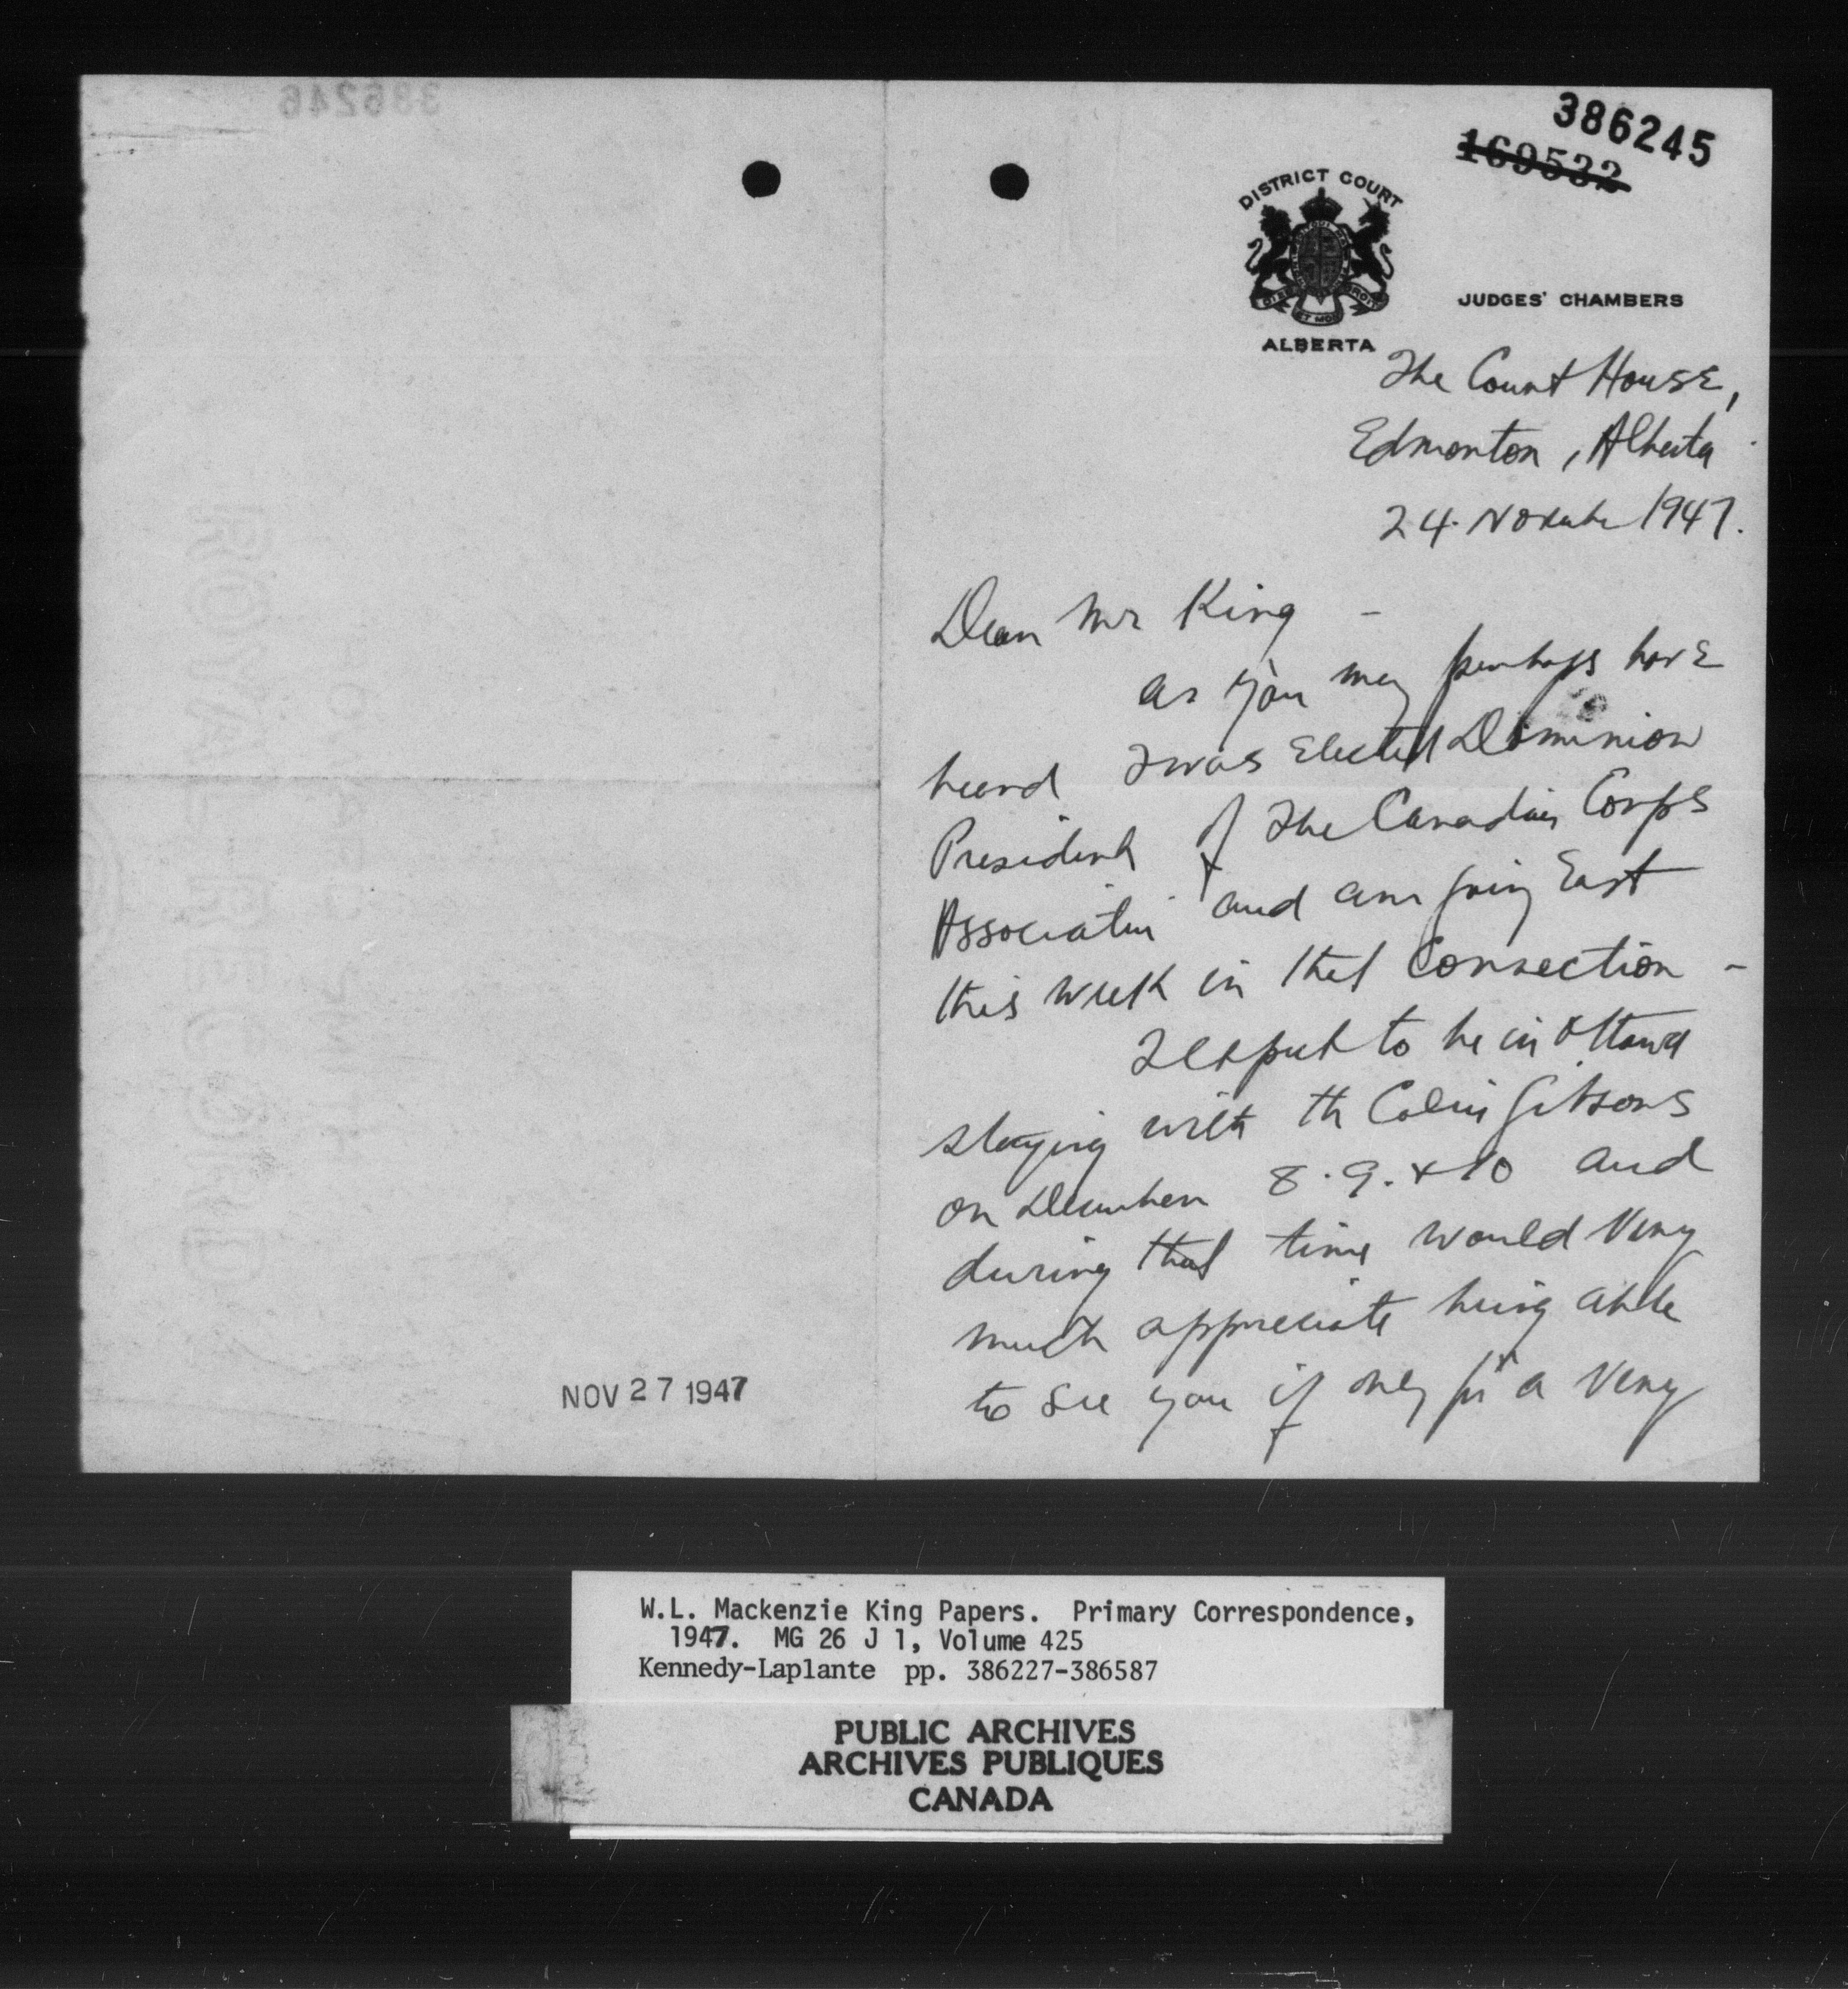 386246
386245
169532
DISTRICT COURT
DIEU ET MON DROIT
ALBERTA
JUDGES' CHAMBERS
The Court House,
Edmonton, Alberta
24. November 1947.
Dear Mr King -
as you may perhaps have
heard I was Elected Dominion
President of The Canadian Corps
Association and am going East
this week in that Connection -
I expect to be in Ottawa
staying with the Colin Gibsons
on December 8. 9. & 10 and
during that time would Very
much appreciate being able
to see you if only for a Very
NOV 27 1947
W.L. Mackenzie King Papers. Primary Correspondence,
1947. MG 26 J 1, Volume 425
Kennedy-Laplante pp. 386227-386587
PUBLIC ARCHIVES
ARCHIVES PUBLIQUES
CANADA